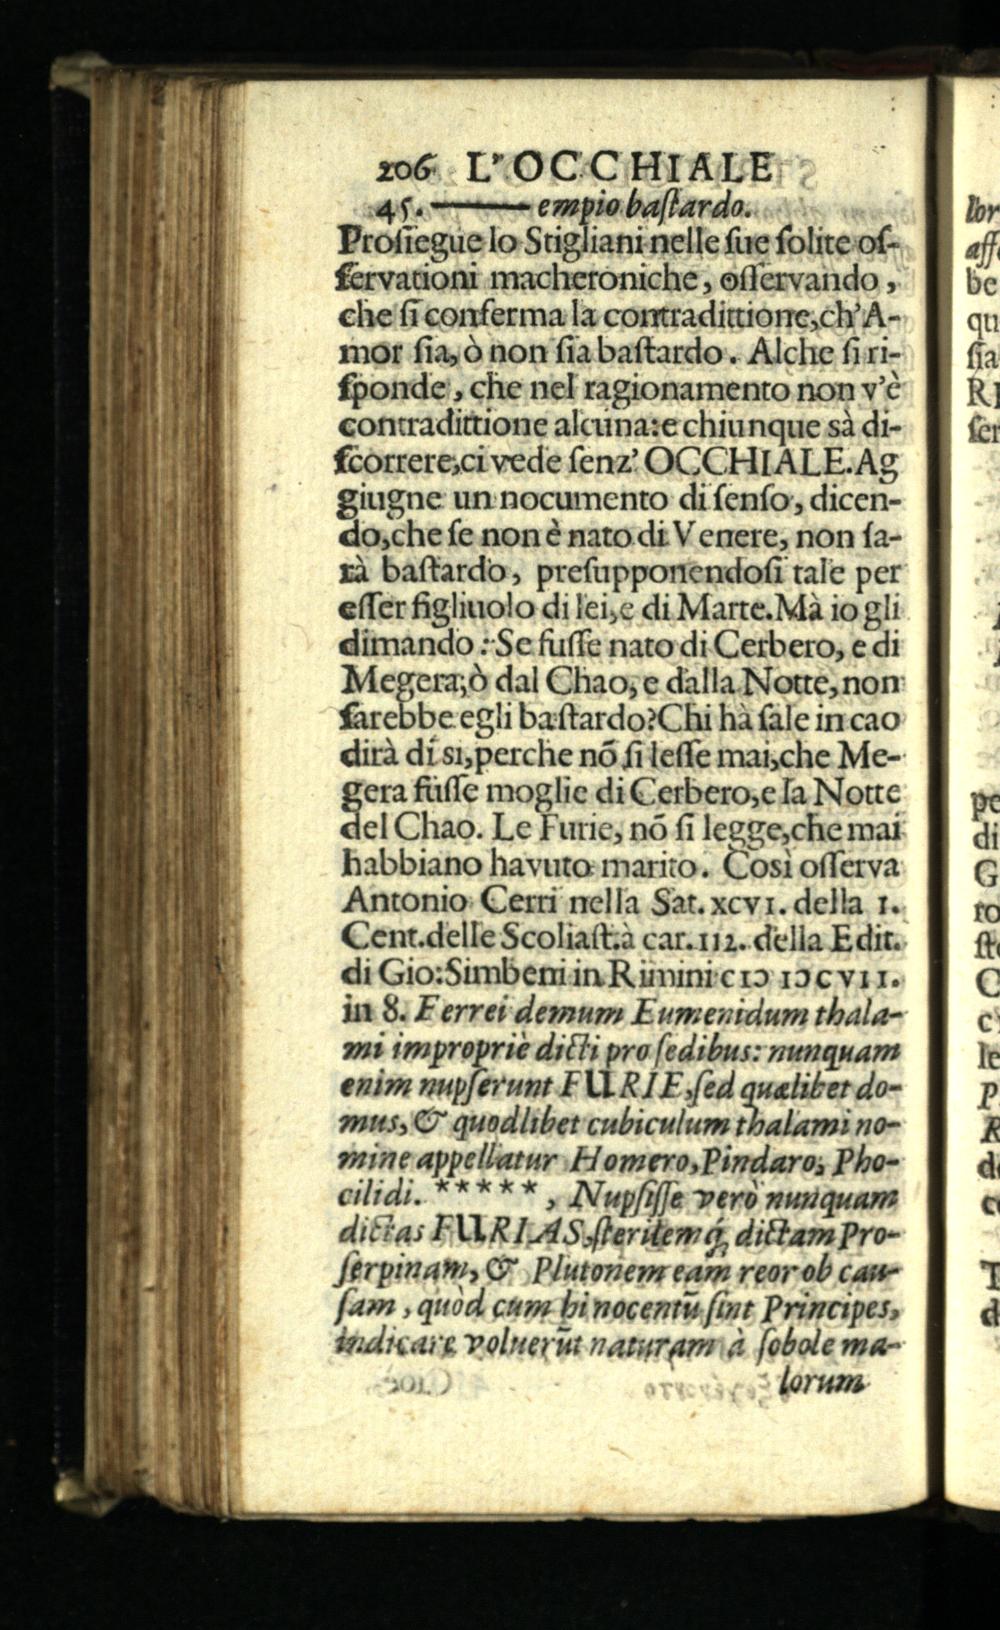 206 L'OCCHIALE
45. ——— empio baſtardo.
Proſiegue lo Stigliani nelle ſue ſolite oſ-
ſervationi macheroniche, oſſervando,
che ſi conferma la contradittione, ch'A-
mor ſia, ò non ſia baſtardo. Alche ſi ri-
ſponde, che nel ragionamento non v'è
contradittione alcuna: e chiunque sà di-
ſcorrere, ci vede ſenz' OCCHIALE. Ag
giugne un nocumento di ſenſo, dicen-
do, che ſe non è nato di Venere, non ſa-
rà baſtardo, preſupponendoſi tale per
eſſer figliuolo di lei, e di Marte. Mà io gli
dimando: Se fuſſe nato di Cerbero, e di
Megera; ò dal Chao, e dalla Notte, non
ſarebbe egli baſtardo? Chi hà ſale in cao
dirà di si, perche nõ ſi leſſe mai, che Me-
gera fuſſe moglie di Cerbero, e la Notte
del Chao. Le Furie, nõ ſi legge, che mai
habbiano havuto marito. Così oſſerva
Antonio Cerri nella Sat. XCVI. della I.
Cent. delle Scoliaſt. à car. 112. della Edit.
di Gio: Simbeni in Rimini CIↃ IↃCVII.
in 8. Ferrei demum Eumenidum thala-
mi impropriè dicti pro ſedibus: nunquam
enim nupſerunt FURIE, ſed quælibet do-
mus, & quodlibet cubiculum thalami no-
mine appellatur Homero, Pindaro, Pho-
cilidi. *****, Nupſiſſe verò nunquam
dictas FURIAS, ſterilemq́; dictam Pro-
ſerpinam, & Plutonem eam reor ob cau-
ſam, quòd cum hi nocentũ ſint Principes,
indicare voluerũt naturam à ſobole ma-
lorum